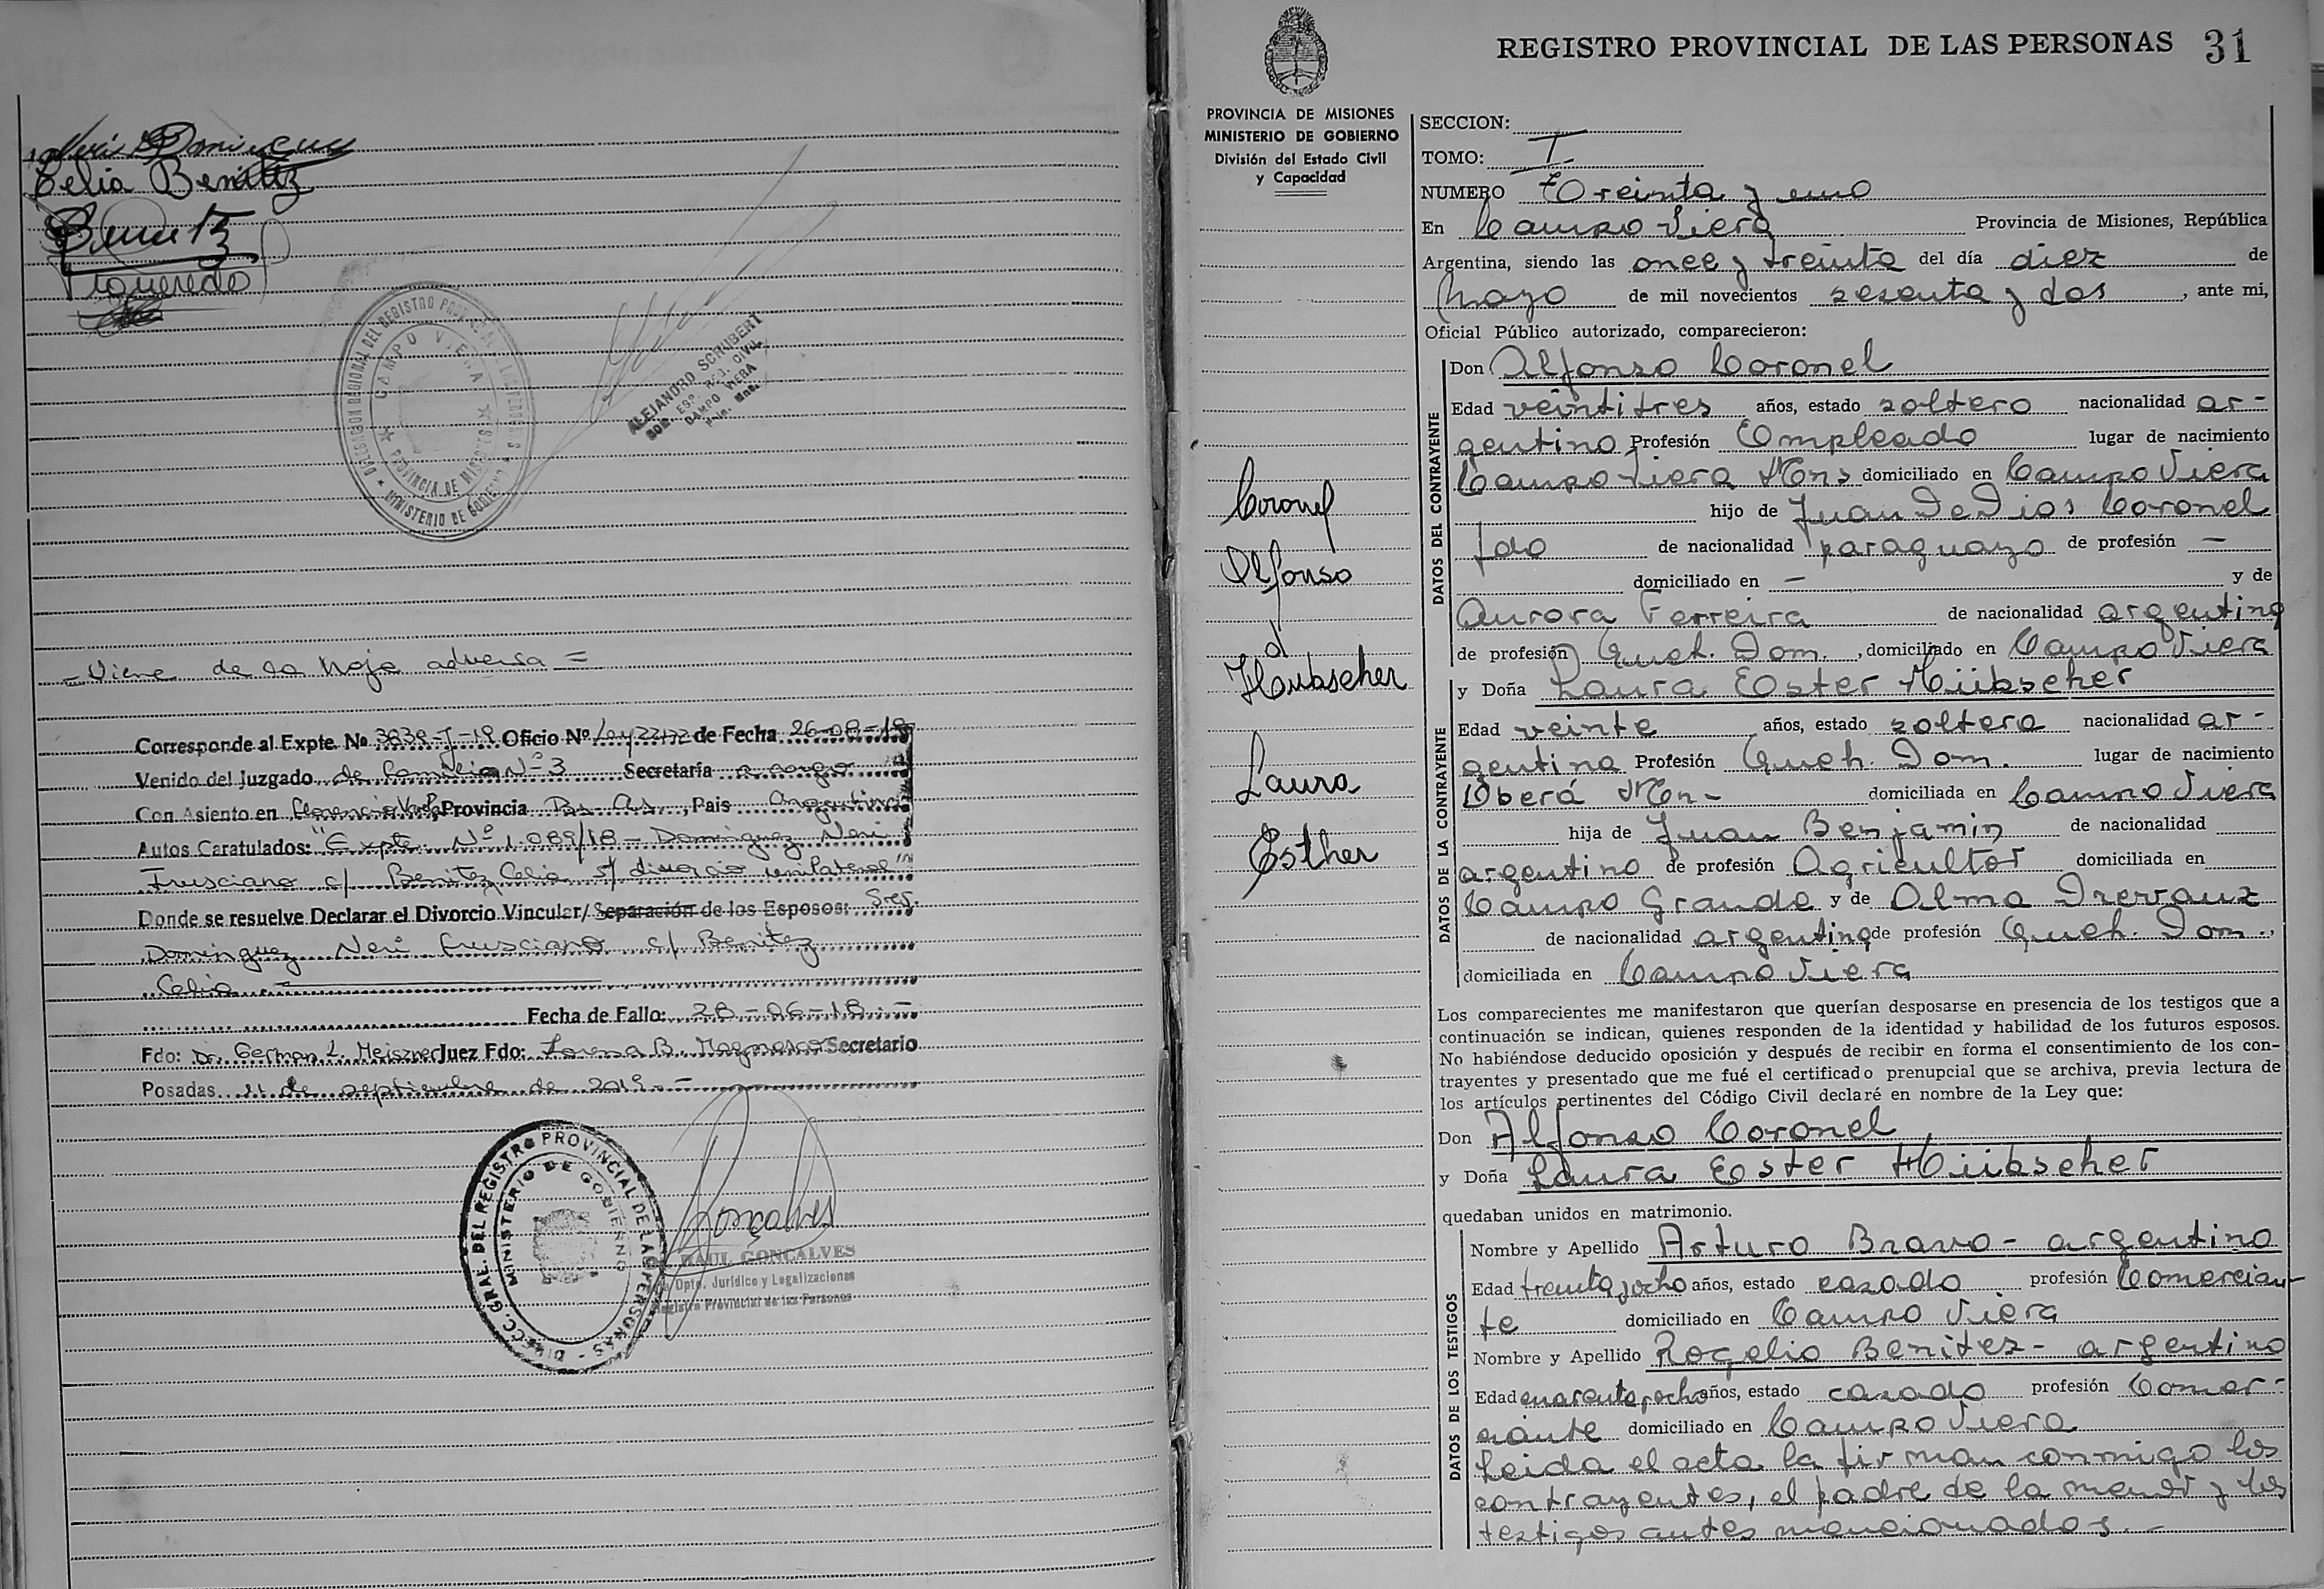 Celia Benitez
Benitez
Figueredo
DELEGACION REGIONAL DEL REGISTRO PROVINCIAL DE LAS PERSONAS
CAMPO VIERA
PROVINCIA DE MISIONES
MINISTERIO DE GOBIERNO
ALEJANDRO SCHUBERT
CAMPO VIERA
= Viene de la hoja adversa =
Corresponde al Expte. Nº 3838-J-19 Oficio Nº de Fecha 26-08-19
Venido del Juzgado de Familia Nº 3 Secretaría a cargo
Con Asiento en Florencio Varela Provincia Bs. As., Pais Argentina
Autos Caratulados: "Expte. Nº 1.089/18 - Dominguez Neri
Frusciano c/ Benitez Celia s/ divorcio unilateral"
Donde se resuelve Declarar el Divorcio Vincular/ Separación de los Esposos: Sres.
Dominguez Neri Frusciano c/ Benitez
Celia
Fecha de Fallo: 28-06-18.-
Fdo: Dr. German L. Meiszner Juez Fdo: Lorena B. Secretario
Posadas 11 de septiembre de 2019.-
DIRECC. GRAL. DEL REGISTRO PROVINCIAL DE LAS PERSONAS
MINISTERIO DE GOBIERNO
Gonçalves
RAUL GONCALVES
Dpto. Jurídico y Legalizaciones
Registro Provincial de las Personas
REGISTRO PROVINCIAL DE LAS PERSONAS 31
PROVINCIA DE MISIONES
MINISTERIO DE GOBIERNO
División del Estado Civil
y Capacidad
Coronel
Alfonso
d
Hubscher
Laura
Esther
SECCION:
TOMO: I-
NUMERO Treinta y uno
En Campo Viera Provincia de Misiones, República
Argentina, siendo las once y treinta del día diez de
Mayo de mil novecientos sesenta y dos, ante mi,
Oficial Público autorizado, comparecieron:
DATOS DEL CONTRAYENTE
Don Alfonso Coronel
Edad veintitres años, estado soltero nacionalidad ar-
gentino Profesión Empleado lugar de nacimiento
Campo Viera Mns domiciliado en Campo Viera
hijo de Juan De Dios Coronel
fdo de nacionalidad paraguayo de profesión —
domiciliado en — y de
Aurora Ferreira de nacionalidad argentina
de profesión Queh. Dom., domiciliado en Campo Viera
DATOS DE LA CONTRAYENTE
y Doña Laura Ester Hübscher
Edad veinte años, estado soltera nacionalidad ar-
gentina Profesión Queh. Dom. lugar de nacimiento
Oberá Mn- domiciliada en Campo Viera
hija de Juan Benjamin de nacionalidad
argentino de profesión Agricultor domiciliada en
Campo Grande y de Alma
de nacionalidad argentina de profesión Queh. Dom.,
domiciliada en Campo Viera
Los comparecientes me manifestaron que querían desposarse en presencia de los testigos que a
continuación se indican, quienes responden de la identidad y habilidad de los futuros esposos.
No habiéndose deducido oposición y después de recibir en forma el consentimiento de los con-
trayentes y presentado que me fué el certificado prenupcial que se archiva, previa lectura de
los artículos pertinentes del Código Civil declaré en nombre de la Ley que:
Don Alfonso Coronel
y Doña Laura Ester Hübscher
quedaban unidos en matrimonio.
DATOS DE LOS TESTIGOS
Nombre y Apellido Arturo Bravo - argentino
Edad treinta y ocho años, estado casado profesión Comercian-
te domiciliado en Campo Viera
Nombre y Apellido Rogelio Benitez - argentino
Edad cuarenta y ocho años, estado casado profesión Comer-
ciante domiciliado en Campo Viera
Leida el acta la firman conmigo los
contrayentes, el padre de la menor y los
testigos antes mencionados.-